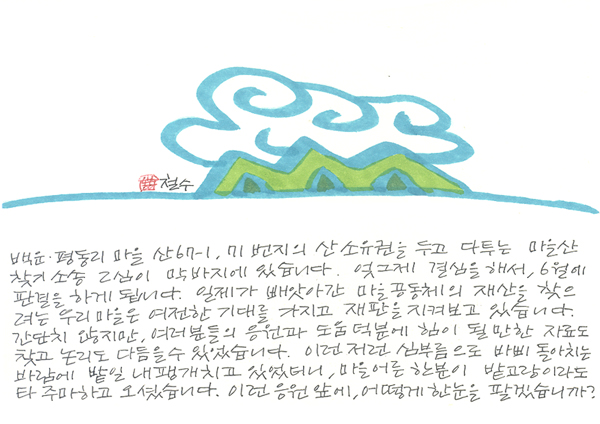 철수
백운·평동리 마을 산67-1, 71 번지의 산 소유권을 두고 다투는 마을산
찾기 소송 2심이 막바지에 있습니다. 엊그제 결심을 해서, 6월에
판결을 하게 됩니다. 일제가 빼앗아간 마을공동체의 재산을 찾으
려는 우리마을은 여전한 기대를 가지고 재판을 지켜보고 있습니다.
간단치 않지만, 여러분들의 응원과 도움 덕분에 힘이 될 만한 자료도
찾고 논리도 다듬을 수 있었습니다. 이런저런 심부름으로 바삐 돌아치는
바람에 밭일 내팽개치고 있었더니, 마을어른 한분이 밭고랑이라도
타 주마하고 오셨습니다. 이런 응원 앞에, 어떻게 한눈을 팔겠습니까?